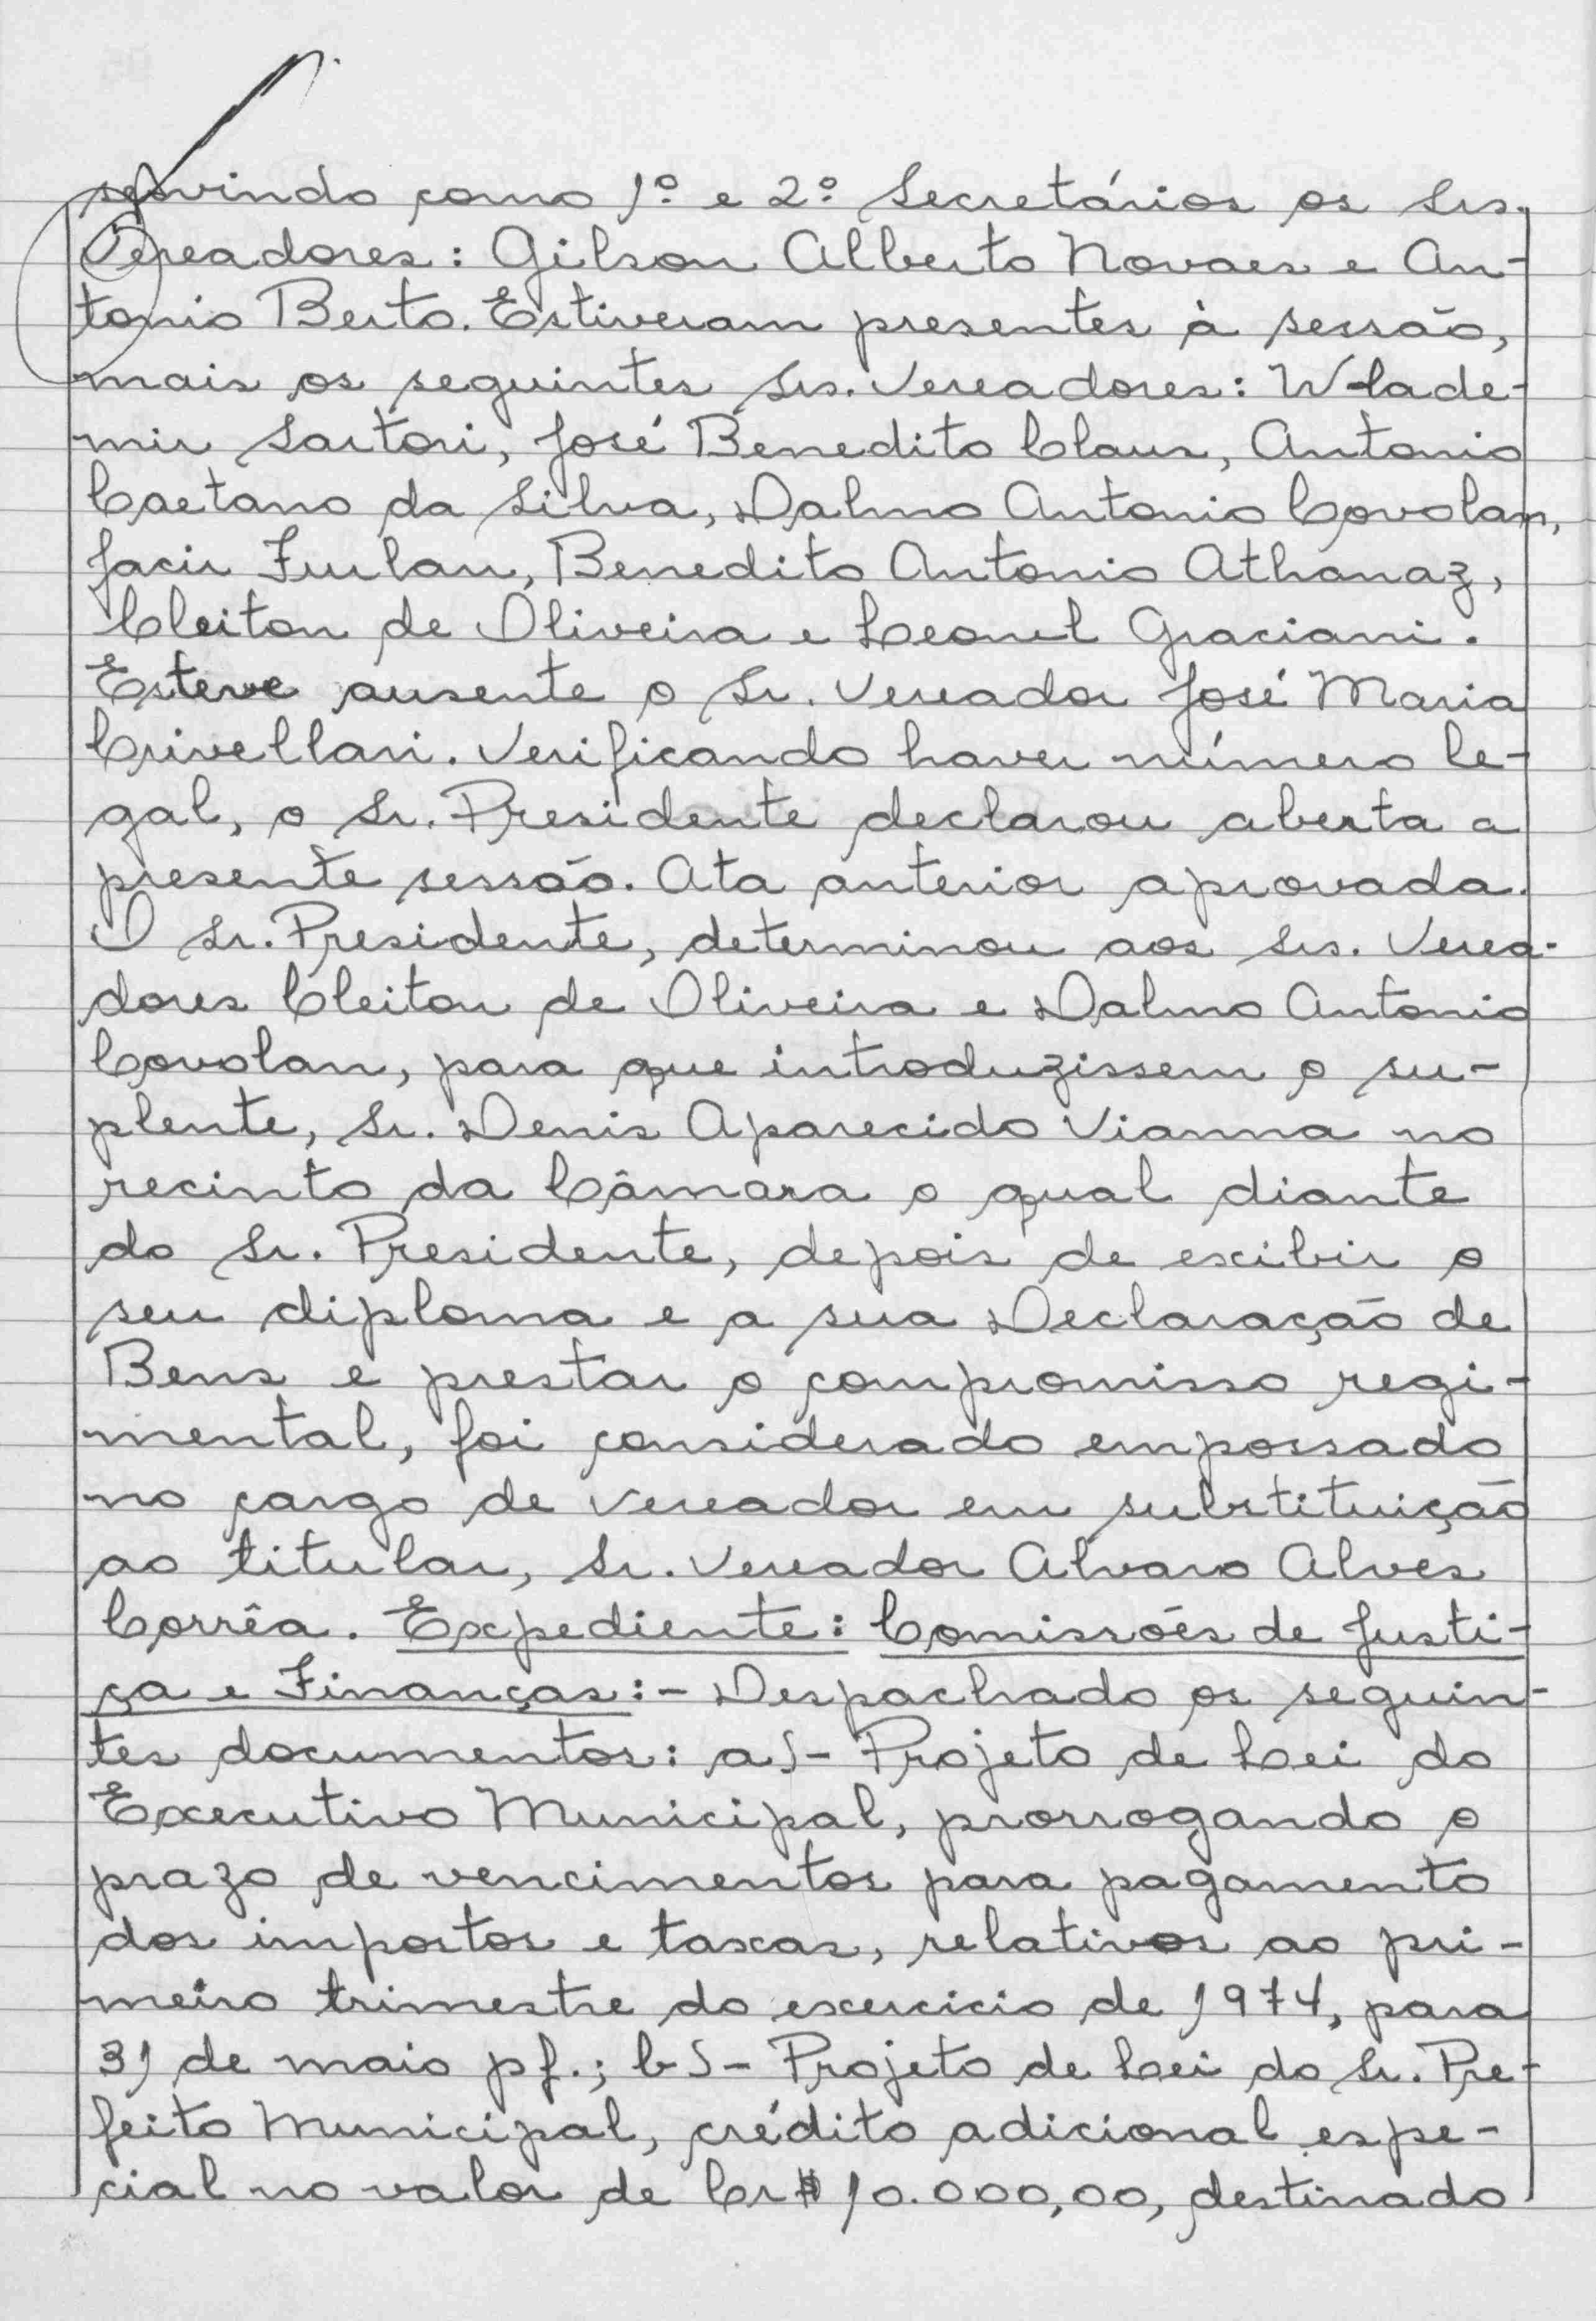 servindo como 1º e 2º Secretários os Srs.
Vereadores: Gilson Alberto Novaes e An-
tonio Berto. Estiveram presentes à sessão,
mais os seguintes Srs. Vereadores: Wlade-
mir Sartori, José Benedito Claus, Antonio
Caetano da Silva, Dalmo Antonio Covolan,
Jacir Furlan, Benedito Antonio Athanaz,
Cleiton de Oliveira e Leonel Graciani.
Esteve ausente o Sr. Vereador José Maria
Crivellari. Verificando haver número le-
gal, o Sr. Presidente declarou aberta a
presente sessão. Ata anterior aprovada.
O Sr. Presidente, determinou aos Srs. Verea-
dores Cleiton de Oliveira e Dalmo Antonio
Covolan, para que introduzissem o su-
plente, Sr. Denis Aparecido Vianna no
recinto da Câmara o qual diante
do Sr. Presidente, depois de exibir o
seu diploma e a sua Declaração de
Bens e prestar o compromisso regi-
mental, foi considerado empossado
no cargo de vereador em substituição
ao titular, Sr. Vereador Alvaro Alves
Corrêa. Expediente: Comissões de Justi-
ça e Finanças:- Despachado os seguin-
tes documentos: a)- Projeto de Lei do
Executivo Municipal, prorrogando o
prazo de vencimentos para pagamento
dos impostos e taxas, relativos ao pri-
meiro trimestre do exercicio de 1974, para
31 de maio pf.; b)- Projeto de Lei do Sr. Pre-
feito Municipal, crédito adicional espe-
cial no valor de Cr$ 10.000,00, destinado